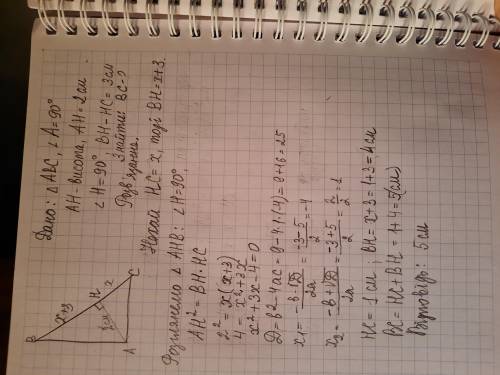 Дано: △ ABC, ∠A=90°
AH-висота, AH=2см.
∠H=90°, BH-HC=3см
Знайти: BC-?
Розв'язання.
Нехай HC=x, тоді BH=x+3.
B
x+3
H
2см
x
A
C
Розглянемо △ AHB: ∠H=90°,
AH²=BH·HC
2²=x(x+3)
4=x²+3x
x²+3x-4=0
D=b²-4ac=9-4·1·(-4)=9+16=25
x₁=(-b-√25)/2a=(-3-5)/2=-4
x₂=(-b+√25)/2a=(-3+5)/2=2/2=1
HC=1см; BH=x+3=1+3=4см
BC=HC+BH=1+4=5(см)
Відповідь: 5см